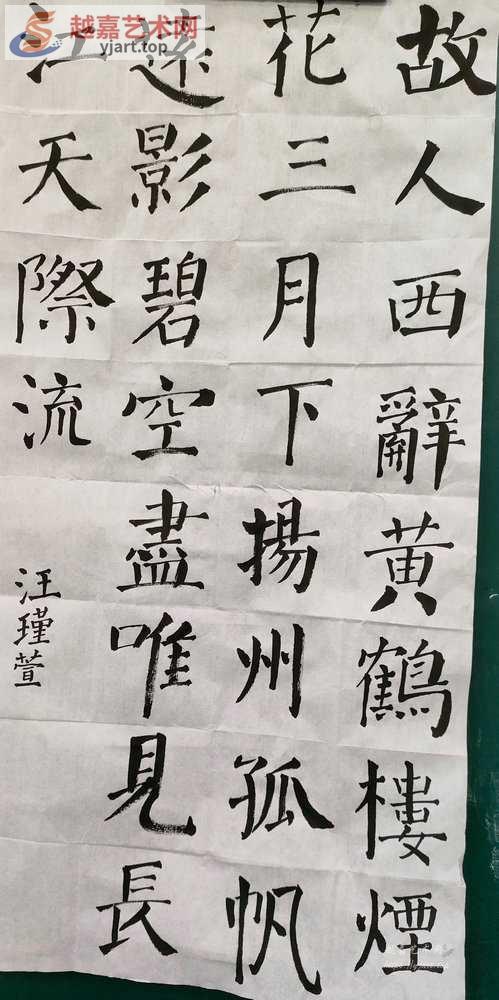 越嘉艺术网
yjart.top
故人西辭黄鶴樓煙
花三月下揚州孤帆
遠影碧空盡唯見長
江天際流
汪瑾萱